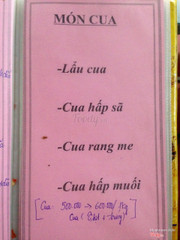 MÓN CUA
-Lẩu cua
-Cua hấp sã
-Cua rang me
-Cua hấp muối
Cua: 500.000 → 600.000/1kg